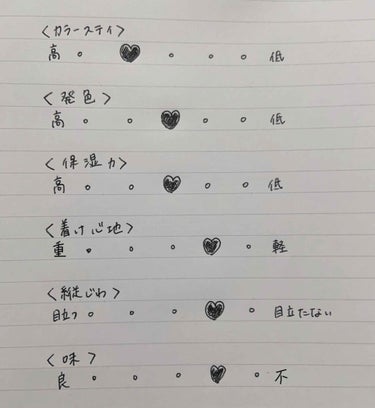 <カラーステイ>
高 ○ ♥ ○ ○ ○ 低
<発色>
高 ○ ○ ♥ ○ ○ 低
<保湿力>
高 ○ ○ ♥ ○ ○ 低
<着け心地>
重 ○ ○ ○ ♥ ○ 軽
<縦じわ>
目立つ ○ ○ ○ ♥ ○ 目立たない
<味>
良 ○ ○ ○ ♥ ○ 不